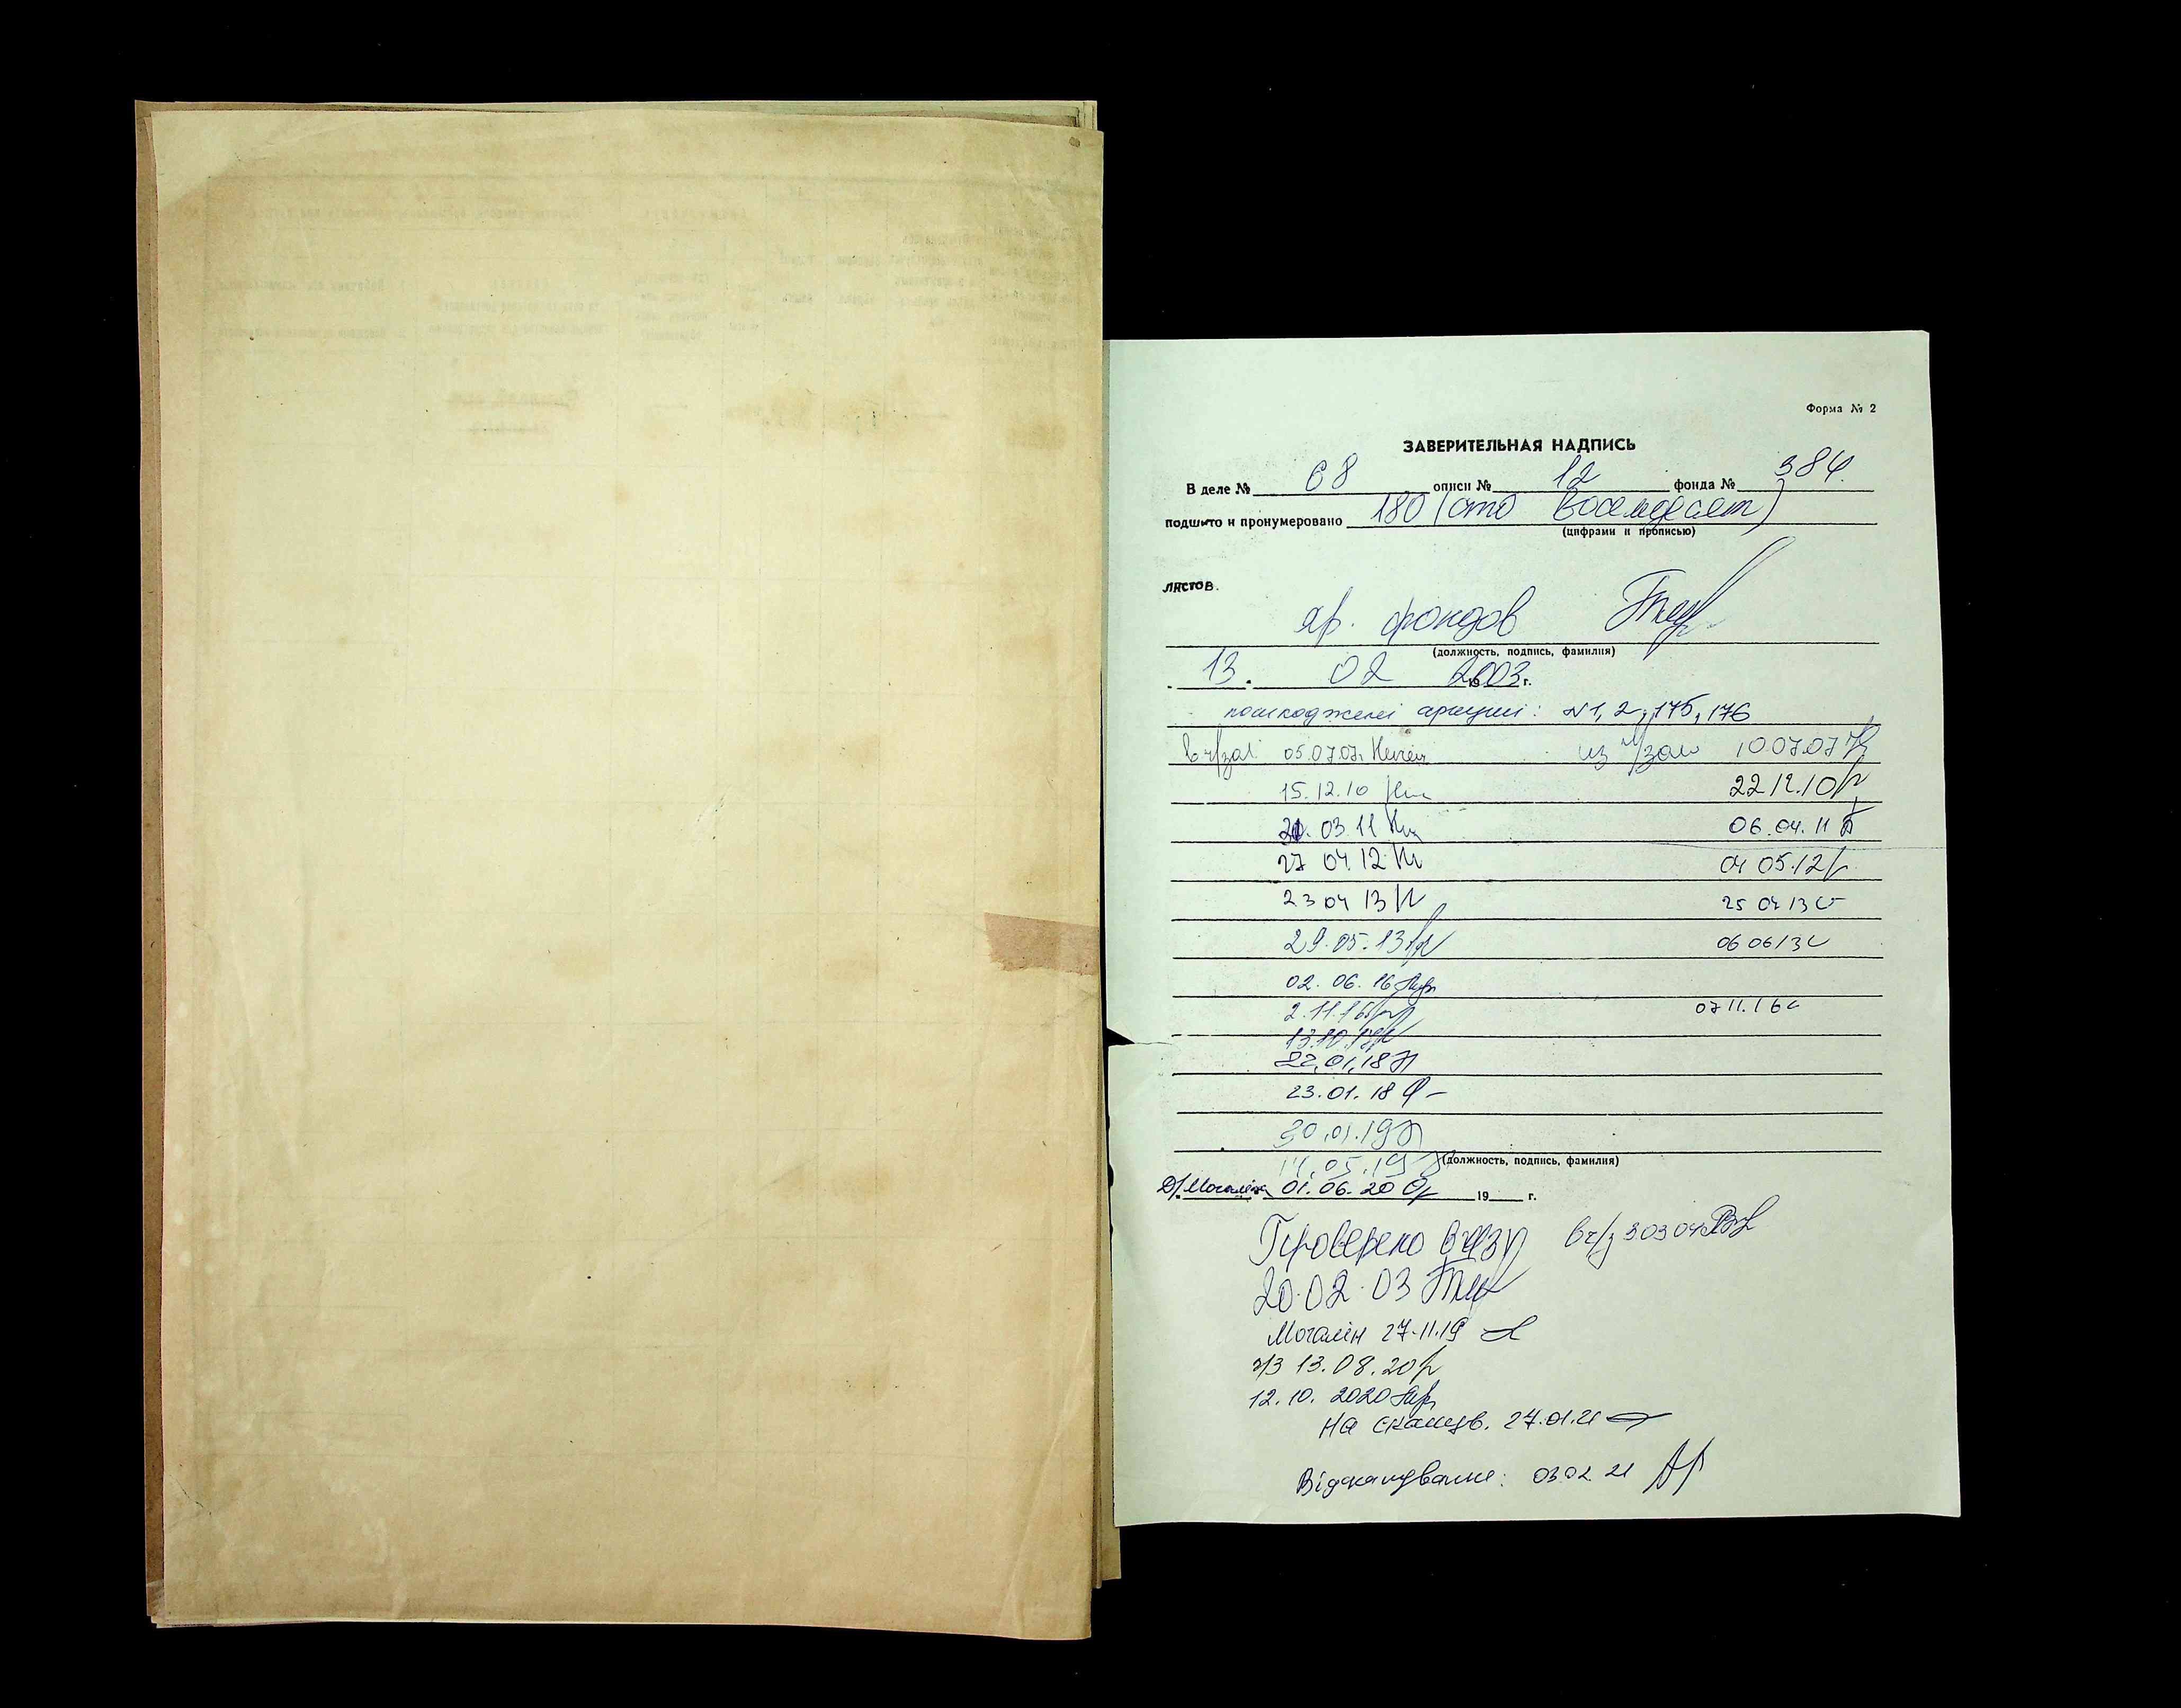 Форма № 2
ЗАВЕРИТЕЛЬНАЯ НАДПИСЬ
В деле № 68 описи № 12 фонда № 384
подшито и пронумеровано 180 (сто восемдесят)
(цифрами и прописью)
листов.
хр. фондов
(должность, подпись, фамилия)
13. 02 2003 г.
пошкоджені аркуші: №1, 2, 175, 176
в ч/зал 05.07.07 из ч/зала 10.07.07
15.12.10 22.12.10
03.11 06.04.11
27 04.12 04 05.12
23 04 13 25 04 13
29.05.13 06 06 13
02. 06. 16
2.11.16 07 11.16
13.10.17
22.01.18
23.01.18
30.01.19
14.05.19 (должность, подпись, фамилия)
01.06.20 19 г.
Проверено в ч/з 303 04
20.02.03
Могалін 27.11.19
ч/з 13.08.20
12.10.2020
на сканув. 27.01.21
Відскановане: 03.02 21